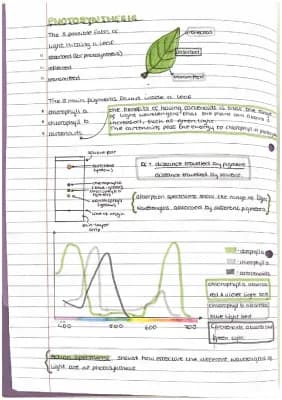 PHOTOSYNTHESIS
The 3 possible fates of
light hitting a leaf
absorbed (for photosynthesis)
reflected
transmitted
reflected
absorbed
transmitted
The 3 main pigments found inside a leaf
chlorophyll a
chlorophyll b
carotenoids
The benefits of having carotenoids is that the range
of light wavelengths that the plant can absorb is
increased, such as green light.
The carotenoids pass the energy to chlorophyll a
solvent front
carotene
chlorophyll a
chlorophyll b
line of origin
thin-layer
Rf = distance travelled by pigment
distance travelled by solvent
absorption spectrums show the range of light
wavelengths absorbed by different pigments
chlorophyll a
chlorophyll b
carotenoids
chlorophyll a absorbs
red & violet light best
chlorophyll b absorbs
blue light best
carotenoids absorb
green light
400 500 600 700
Action spectrums shows how effective the different wavelengths of
light are at photosynthesis